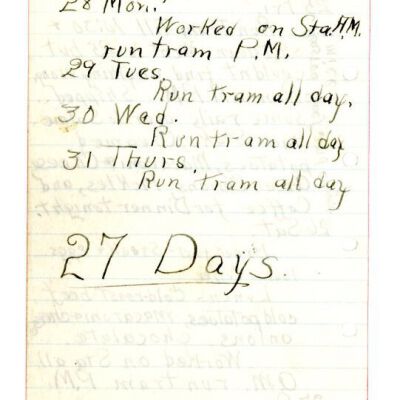 28 Mon.
Worked on Sta. A.M.
run tram P.M.
29 Tues.
Run tram all day.
30 Wed.
Run tram all day
31 Thurs.
Run tram all day
27 Days.